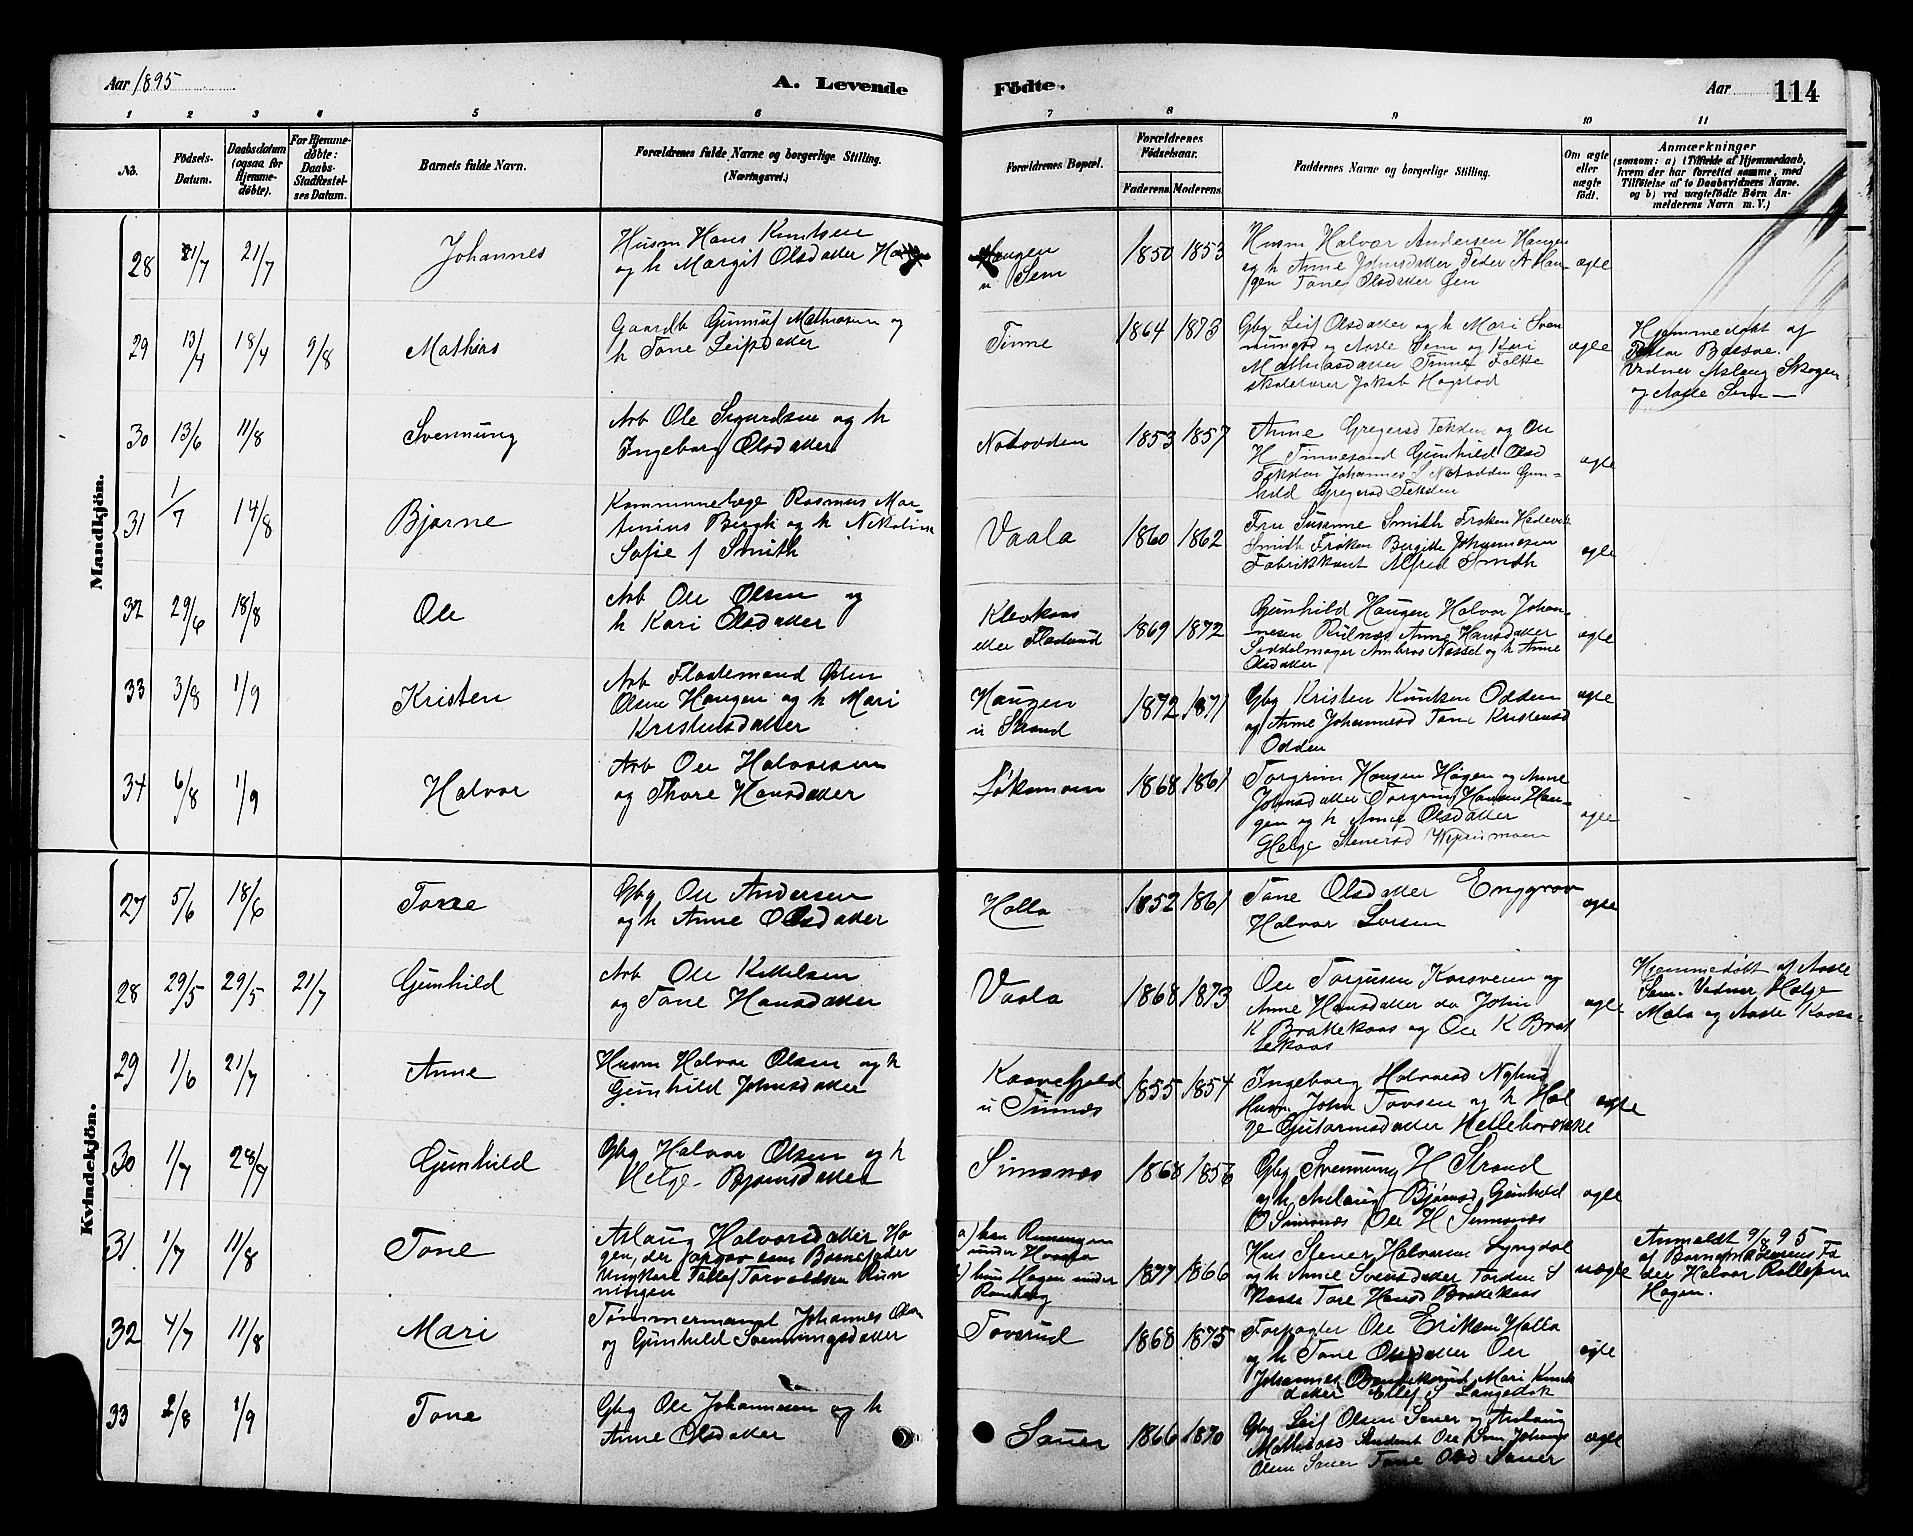 Aar 1895
A. Levende
Födte.
Aar
114
1 2 3 4 5 6 7 8 9 10 11
No.
Födsels-
Datum.
Daabsdatum
(ogsaa for
Hjemme-
døbte).
For Hjemme-
døbte:
Daabs-
Stadfæstel-
ses Datum.
Barnets fulde Navn.
Forældrenes fulde Navne og borgerlige Stilling.
(Næringsvei.)
Forældrenes Bopæl.
Forældrenes
Födselsaar.
Faderens.
Moderens.
Faddernes Navne og borgerlige Stilling.
Om ægte
eller
uægte
födt.
Anmærkninger
(saasom: a) i Tilfælde af Hjemmedaab,
hvem der har forrettet samme, med
Tilföielse af to Daabsvidners Navne.
og b) ved uægtefödte Börn An-
melderens Navn m. V.)
Mandkjön.
28 21/7 Johannes
Husm Hans Knutsen
og h Margit Olsdatter
Haugen
u Sem
1850 1853
Husm Halvor Andersen Haugen
og h Anne Johnsdatter Peder A Hau-
gen Tone Olsdatter
ægte
29 13/4 18/4 9/8 Mathias
Gaardb Gunnuf Mathiasen og
h Tone Leifsdatter
Tinne
1864 1873
Gbg Leif Olsdatter og h Mari Sven
og Aaste Sem og Kari
Mathiasdatter Tinne Folke
skolelærer Jakob Hogstad
ægte
Hjemmedøbt af
Vidner Aslaug Skogen
og Aaste Sem
30 13/6 11/8 Svennung
Arb Ole Sigurdsen og h
Ingeborg Olsdatter
Notodden
1853 1857
Anne Gregersd Tekslen og Ole
H Tinnesand Gunhild Olsd
Tekslen Johannes S Notodden Gun-
hild Gregersd Tekslen
ægte
31 1/7 14/8 Bjarne
Kommunelæge Rasmus Mar-
tinius Bergh og h Nikoline
Sofie f Smith
Vaala
1860 1862
Fru Susanne Smith Frøken Hedevik
Smith Frøken Birgitte Johannesen
Fabrikkant Alfred Smith
ægte
32 29/6 18/8 Ole
Arb Ole Olsen og
h Kari Olsdatter
Klevkaas
1869 1872
Gunhild Haugen Halvor Johan-
nesen Anne Hansdatter
Saddelmager Ambros Næsset og h Anne
Olsdatter
ægte
33 3/8 1/9 Kristen
Arb Flodemand Østen
Olsen Haugen og h Mari
Kristensdatter
Haugen
u Strand
1872 1871
Gbg Kristen Knutsen Odden
og Anne Johannesd Tone Kristensd
Odden
ægte
34 6/8 1/9 Halvor
Arb Ole Halvorsen
og Thore Hansdatter
1868 1861
Torgrim Hansen Høgen og Anne
Johnsdatter Torgrim Hansen Hau-
gen og h Anne Olsdatter
Helge Stenersd
ægte
Kvindekjön.
27 5/6 18/6 Tone
Gbg Ole Andersen
og h Anne Olsdatter
Holla
1852 1861
Tone Olsdatter Enggrav
Halvor Larsen
ægte
28 29/5 29/5 21/7 Gunhild
Arb Ole Kittelsen
og Tone Hansdatter
Vaala
1868 1873
Ole Torjusen Korsveien og
Anne Hansdatter do John
K Brattekaas og Ole K Brat
tekaas
ægte
Hjemmedøbt af Aaste
Sem. Vidner Helge
Mæla og Aaste
29 1/6 21/7 Anne
Husm Halvor Olsen og h
Gunhild Johnsdatter
Kaavefjeld
u Tinnæs
1855 1854
Ingeborg Halvorsd Nylund
Husm John Tovsen og h Hel
ge Guttormsdatter
ægte
30 1/7 28/7 Gunhild
Gbg Halvor Olsen og h
Helge Bjørnsdatter
Simonæs
1868 1856
Gbg Svennung H Strand
og h Aslaug Bjørnsd Gunhild
O Simonæs Ole H Simonæs
ægte
31 1/7 11/8 Tone
Aslaug Halvorsdatter Ho-
gen, der opgav som Barnefader
Ungkarl Tallef Torvaldsen Run-
ningen
a) han Runningen
under
b) hun Hogen under
1877 1866
Hus Stener Halvorsen Lyngdal
og h Anne Svensdatter Torden S
Tore Hansd Brattekaas
uægte
Anmeldt 9/8 95
af Barnemoderens Fa
der Halvor Rollefsen
Hogen.
32 4/7 11/8 Mari
Tømmermand Johannes Olsen
og Gunhild Svenningsdatter
Toverud
1868 1875
Forpagter Ole Eriksen Holla
og h Tone Olsdatter Ole
Johannes Mari Knuts
datter Ellef S Langedok
ægte
33 2/8 1/9 Tone
Gbg Ole Johannesen og h
Anne Olsdatter
Sauer
1866 1870
Gbg Leif Olsen Sauer og Aslaug
Mathiasd Student Ole Johans
Olsen Sauer Tone Olsd Sauer
ægte